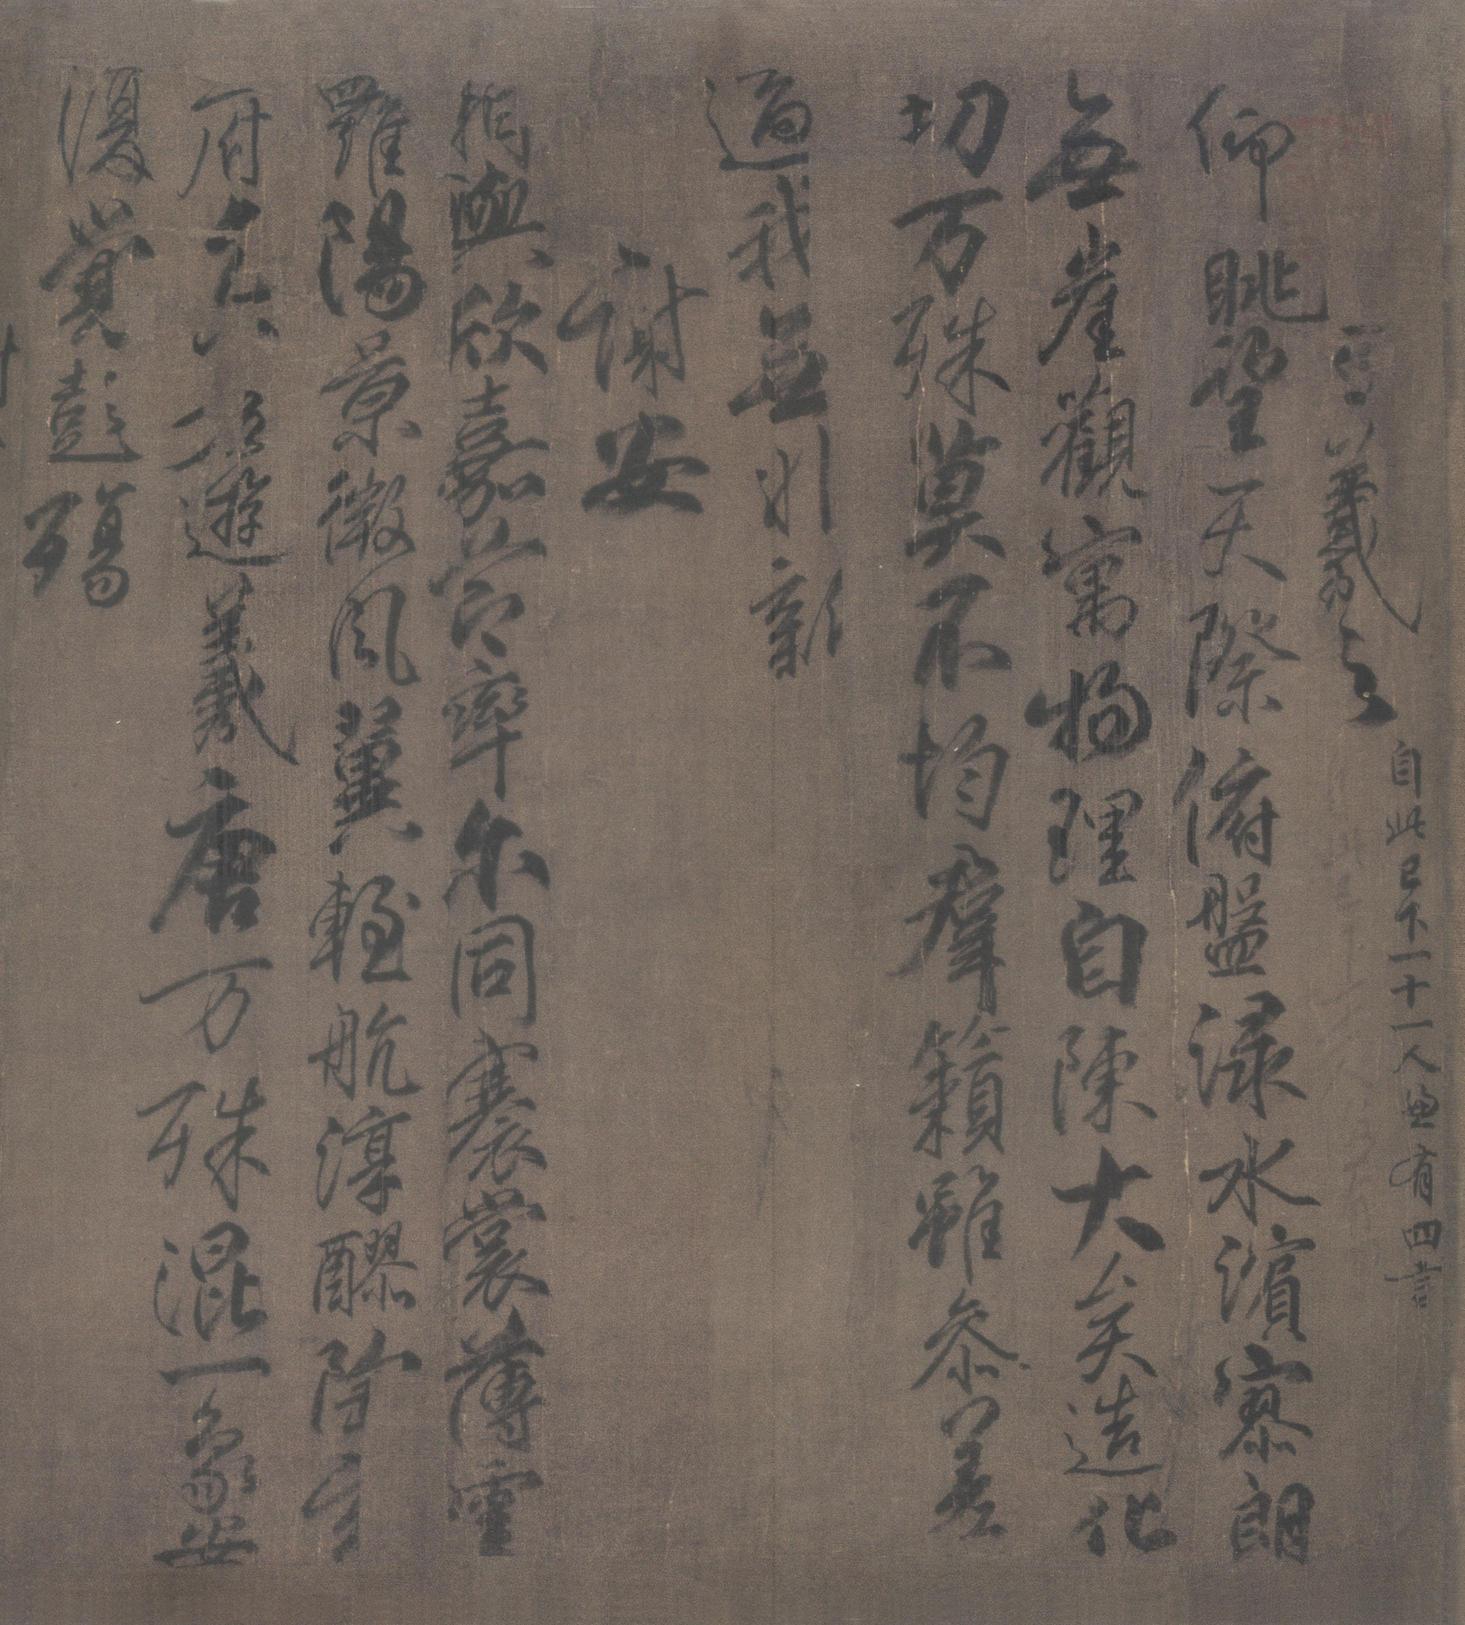 王羲之 自此已下一十一人兼有四言
仰眺望天際俯盤淥水濱寥朗
無崖觀寓物理自陳大矣造化
功万殊莫不均羣籟雖参差
適我無非新
謝安
相與欣嘉節率尔同褰裳薄雲
羅陽景微風翼輕航淳醪陶玄
府兀若遊羲唐万殊混一象安
復覺彭殤